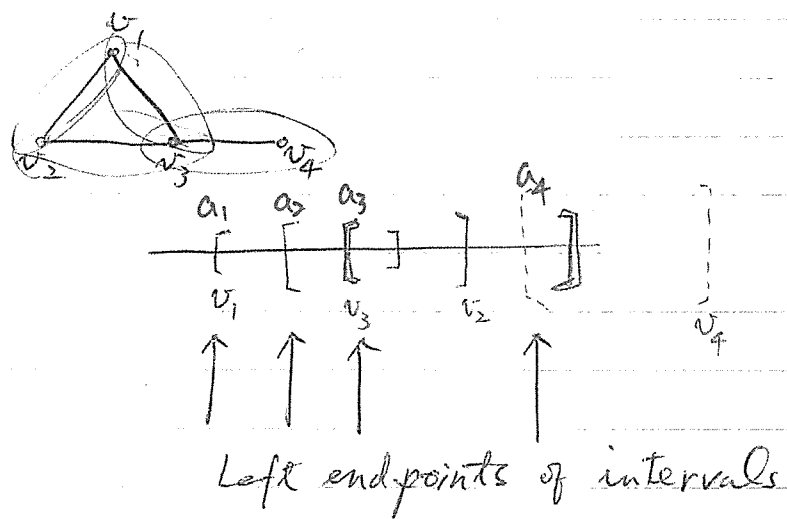 v1
v2 v3 v4
a1 a2 a3 a4
[ [ [ ] ] [ ] ]
v1 v3 v2 v4
Left endpoints of intervals